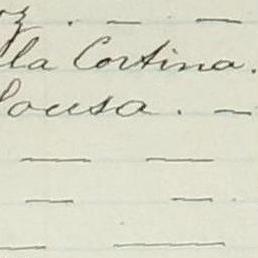 oz . — —
lla Cortina.
Sousa . —
— —
— —
— —